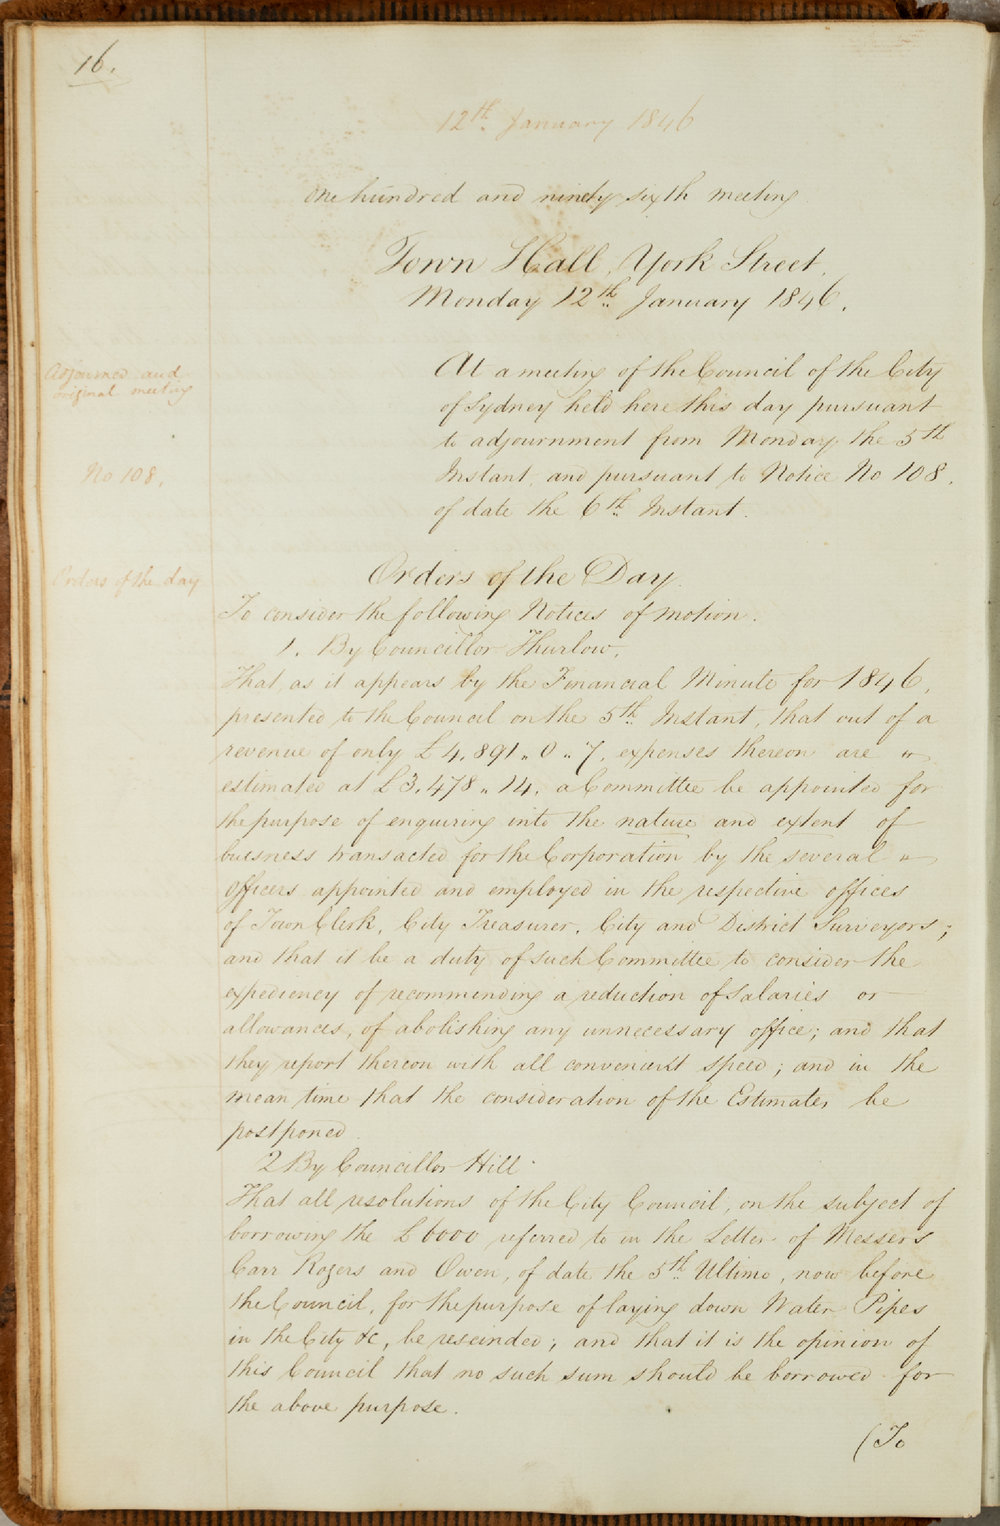 16.
12th January 1846
One hundred and ninety sixth meeting
Town Hall, York Street.
Monday 12th January 1846.
Adjourned and
original meeting
At a meeting of the Council of the City
of Sydney held here this day pursuant
to adjournment from Monday the 5th
No 108.
Instant, and pursuant to Notice No 108.
of date the 6th Instant.
Orders of the day
Orders of the Day.
To consider the following Notices of motion.
1. By Councillor Thurlow.
That, as it appears by the Financial Minute for 1846,
presented to the Council on the 5th Instant, that out of a
revenue of only £4,891 ,, 0 ,, 7. expenses thereon are "
estimated at £3,478 ,, 14. a Committee be appointed for
the purpose of enquiring into the nature and extent of
buisness transacted for the Corporation by the several "
officers appointed and employed in the respective offices
of Town Clerk, City Treasurer, City and District Surveyors;
and that it be a duty of such Committee to consider the
expediency of recommending a reduction of salaries or
allowances, of abolishing any unnecessary office; and that
they report thereon with all convenient speed; and in the
mean time that the consideration of the Estimates be
postponed.
2 By Councillor Hill.
That all resolutions of the City Council, on the subject of
borrowing the £6000 referred to in the Letter of Messers
Carr Rogers and Owen, of date the 5th Ultimo, now before
the Council, for the purpose of laying down Water Pipes
in the City &c, be rescinded; and that it is the opinion of
this Council that no such sum should be borrowed for
the above purpose.
(To